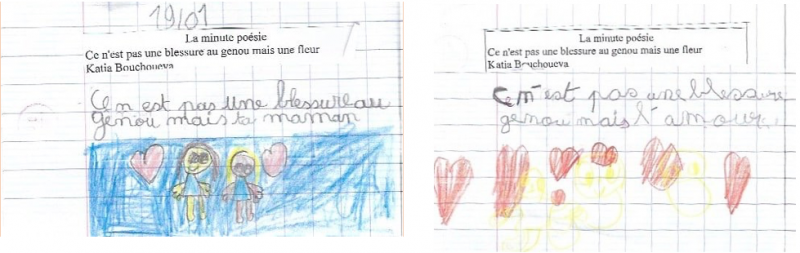 19/01
La minute poésie
Ce n'est pas une blessure au genou mais une fleur
Katia Bouchoueva
Ce n est pas une blessure au
genou mais ta maman
La minute poésie
Ce n'est pas une blessure au genou mais une fleur
Katia Bouchoueva
Ce n'est pas une blessure
genou mais l'amour.